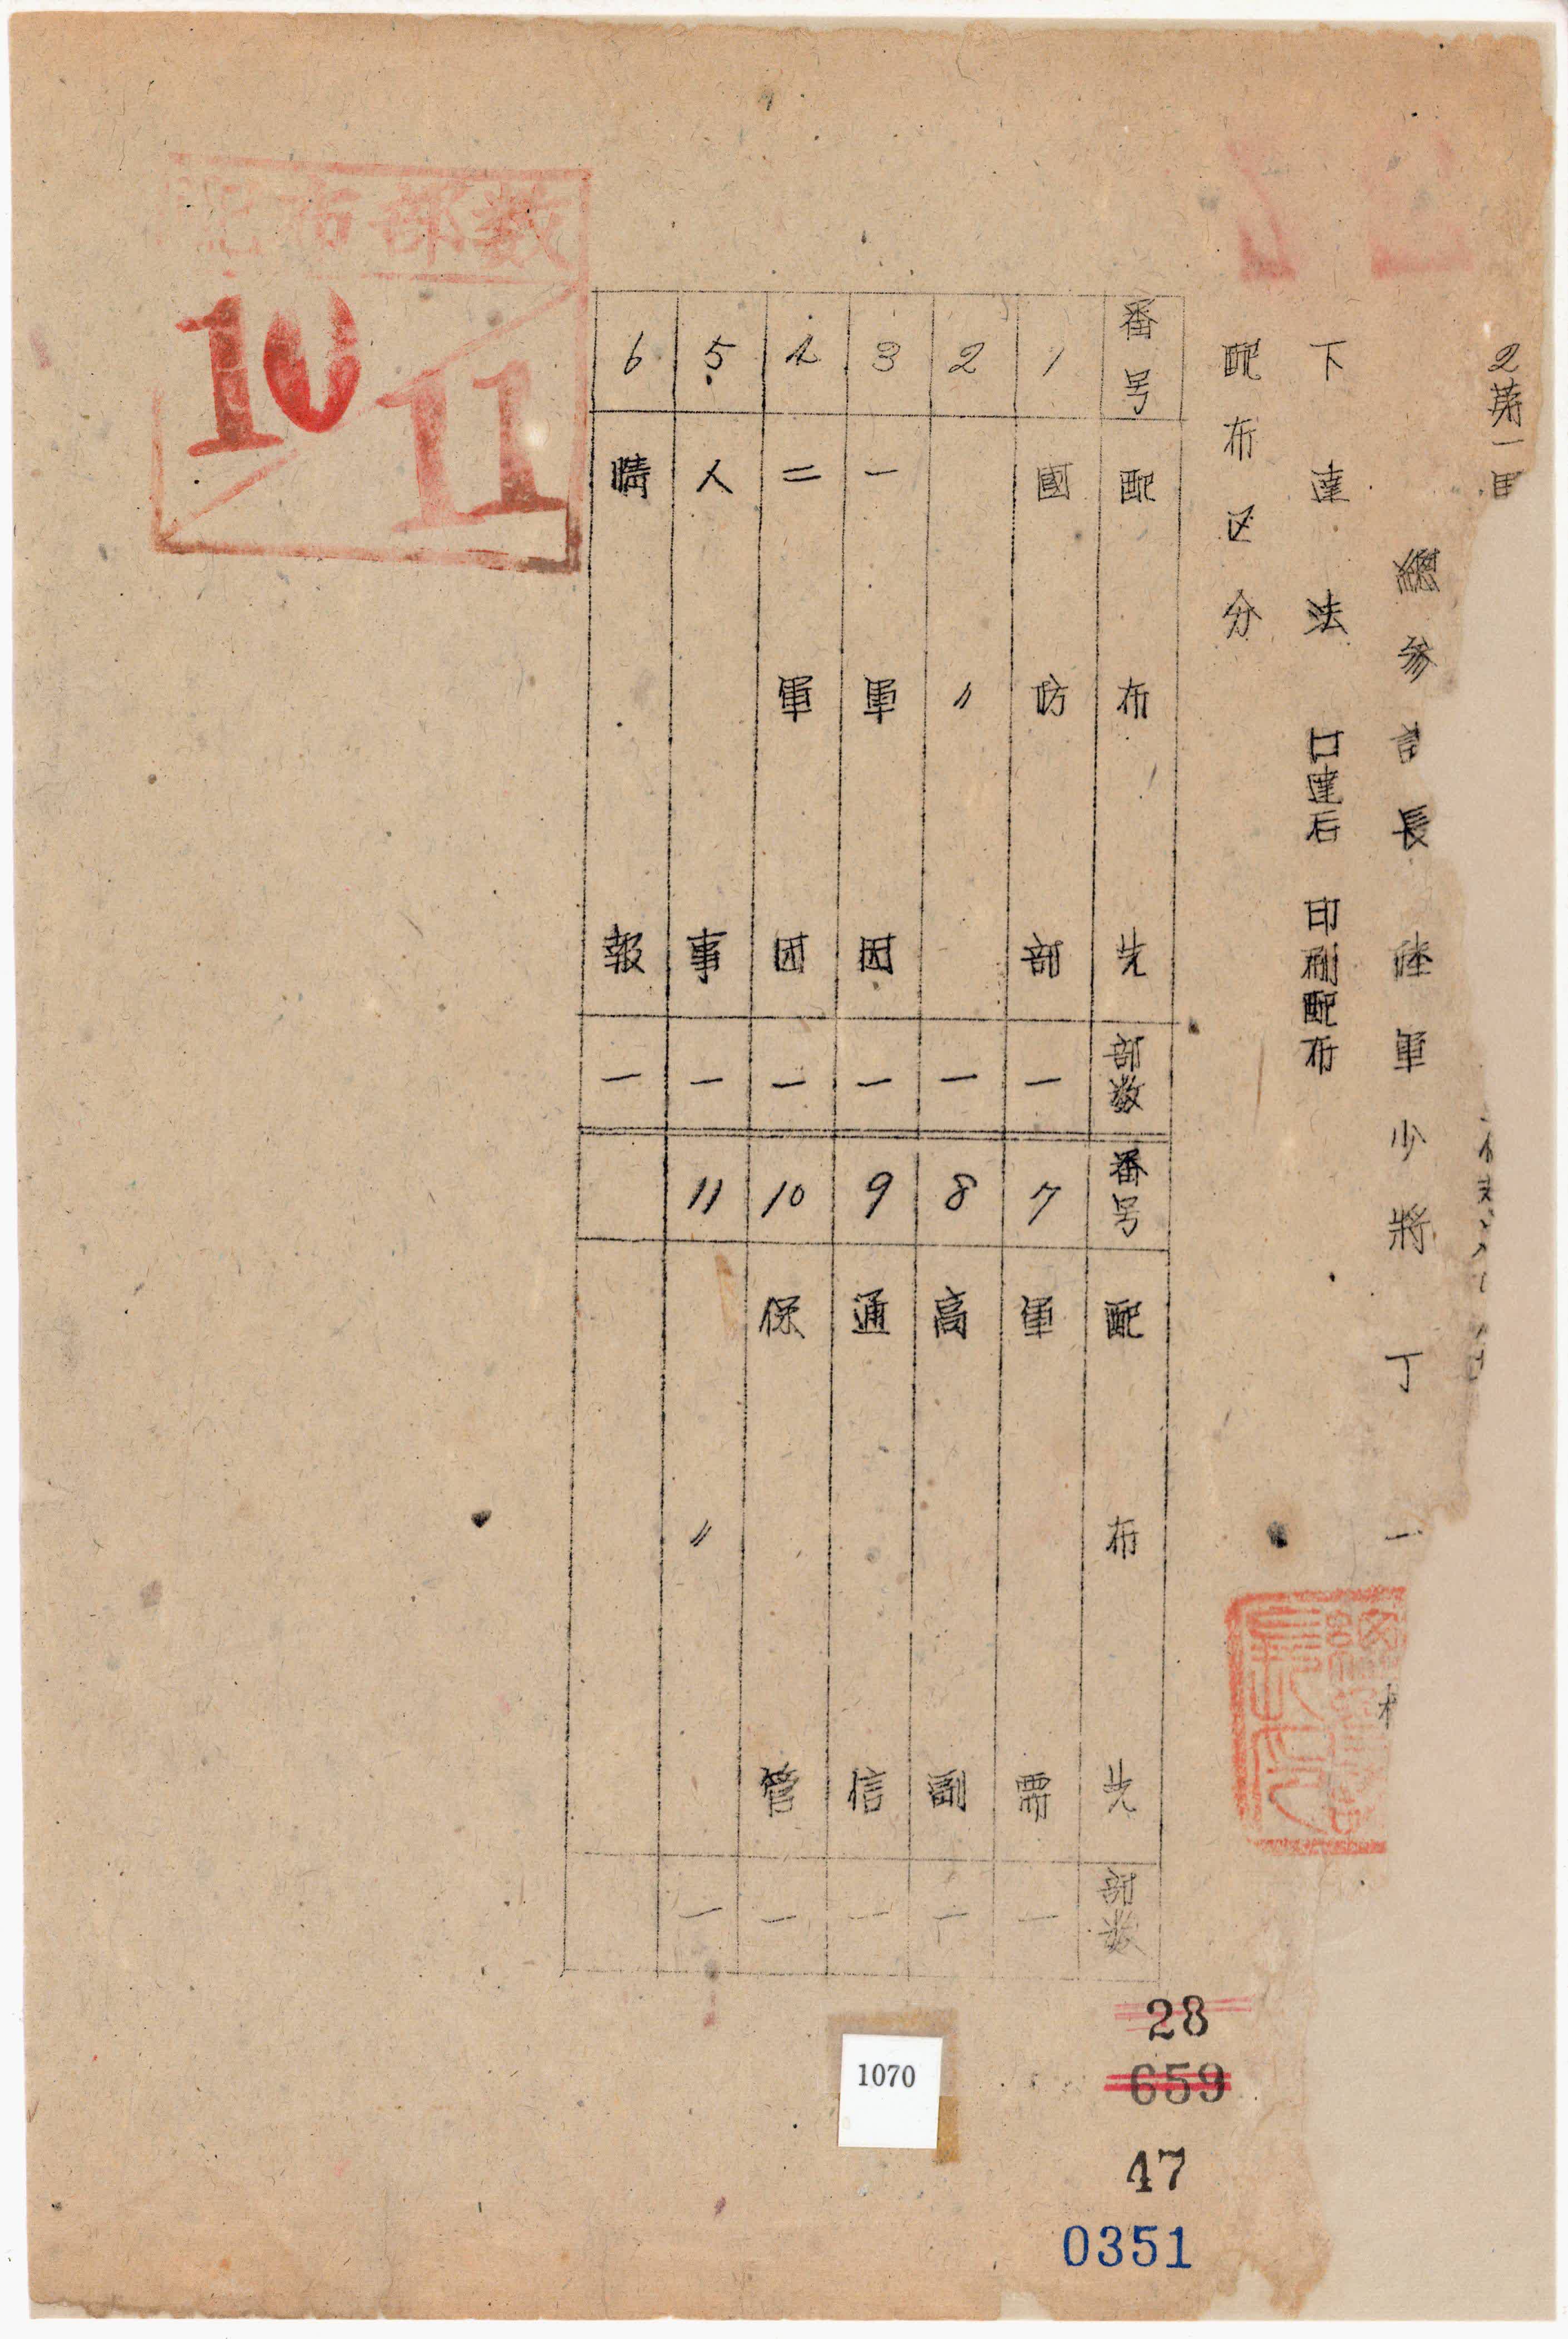 2 第一
總參謀長 陸軍少將 丁 一
下達法 口達后 印刷配布
配布区分
番号 配布先 部数
1 國防部 一
2 〃 一
3 一軍団 一
4 二軍団 一
5 人事 一
6 情報 一
番号 配布先 部数
7 軍需 一
8 高副 一
9 通信 一
10 保管 一
11 〃 一
配布部数
10
11
28
659
1070
47
0351